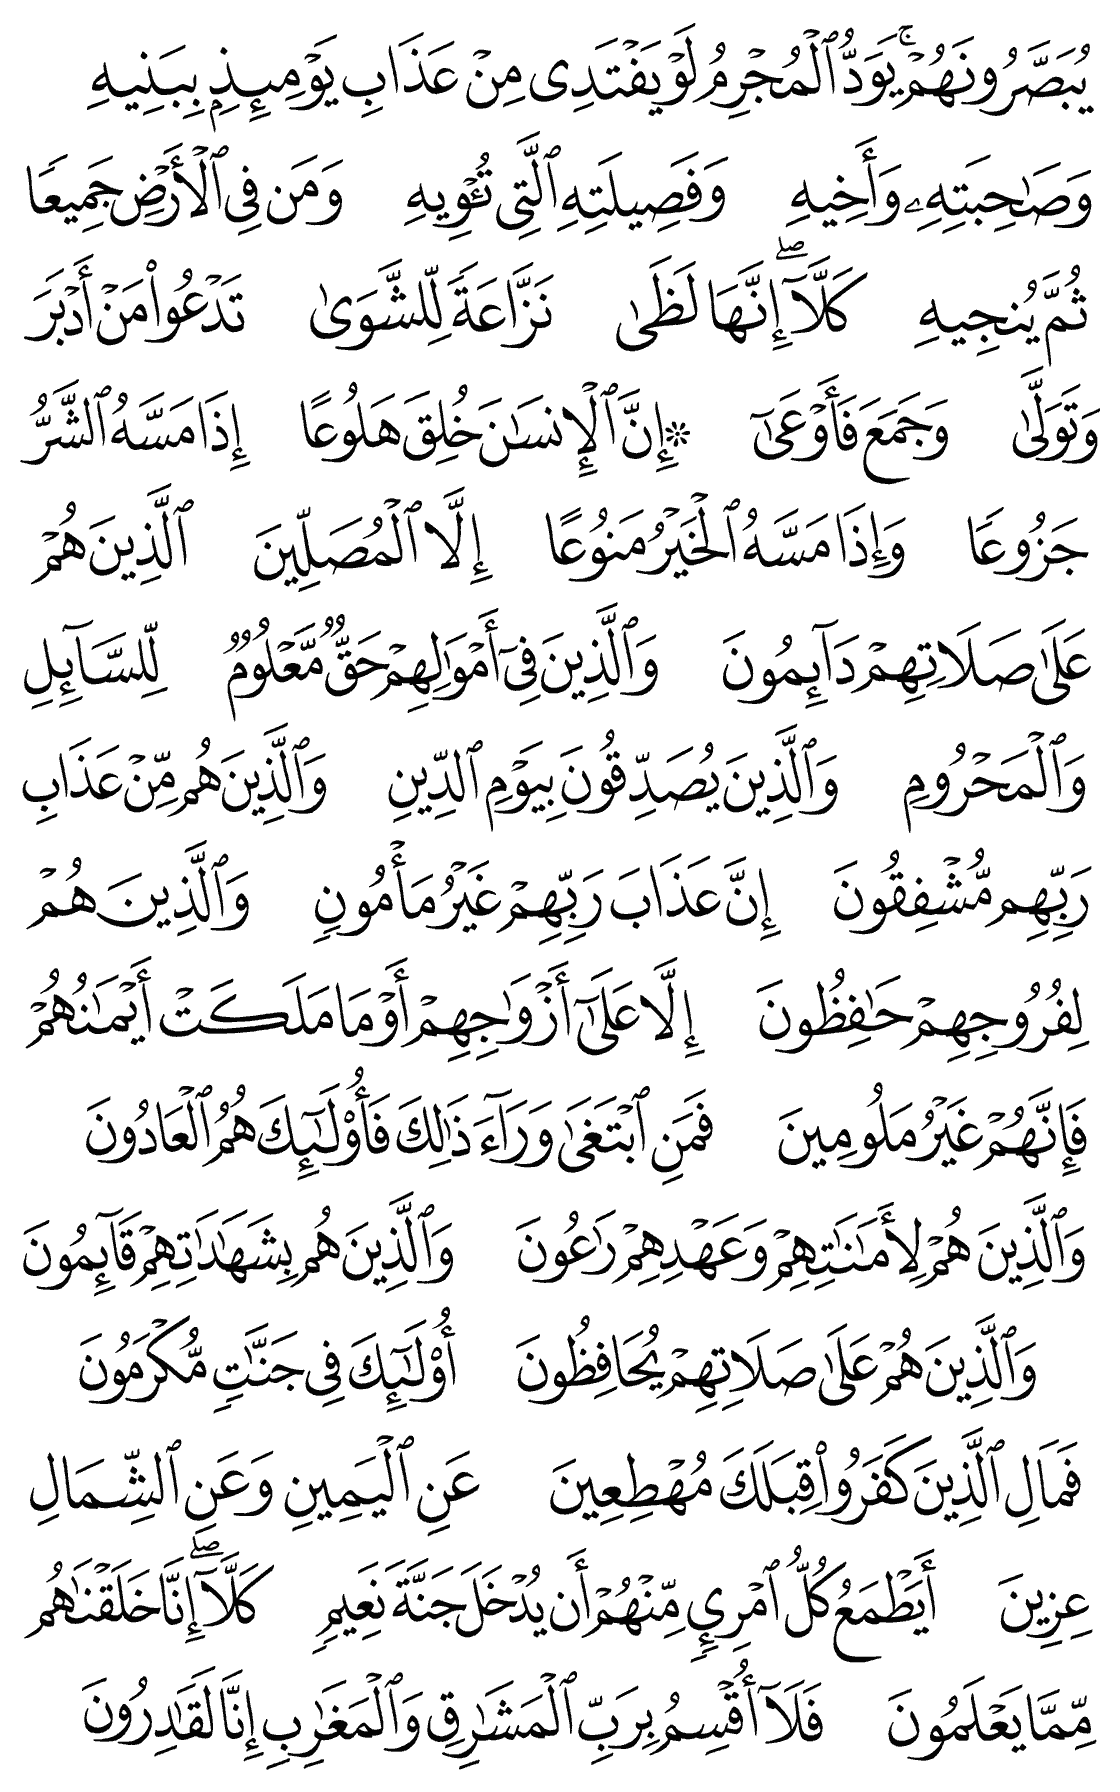 يُبَصَّرُونَهُمْۚ يَوَدُّ ٱلْمُجْرِمُ لَوْ يَفْتَدِى مِنْ عَذَابِ يَوْمِئِذِۭ بِبَنِيهِ
وَصَٰحِبَتِهِۦ وَأَخِيهِ وَفَصِيلَتِهِ ٱلَّتِى تُـْٔوِيهِ وَمَن فِى ٱلْأَرْضِ جَمِيعًا
ثُمَّ يُنجِيهِ كَلَّآۖ إِنَّهَا لَظَىٰ نَزَّاعَةً لِّلشَّوَىٰ تَدْعُوا۟ مَنْ أَدْبَرَ
وَتَوَلَّىٰ وَجَمَعَ فَأَوْعَىٰٓ ۞إِنَّ ٱلْإِنسَٰنَ خُلِقَ هَلُوعًا إِذَا مَسَّهُ ٱلشَّرُّ
جَزُوعًا وَإِذَا مَسَّهُ ٱلْخَيْرُ مَنُوعًا إِلَّا ٱلْمُصَلِّينَ ٱلَّذِينَ هُمْ
عَلَىٰ صَلَاتِهِمْ دَآئِمُونَ وَٱلَّذِينَ فِىٓ أَمْوَٰلِهِمْ حَقٌّ مَّعْلُومٌ لِّلسَّآئِلِ
وَٱلْمَحْرُومِ وَٱلَّذِينَ يُصَدِّقُونَ بِيَوْمِ ٱلدِّينِ وَٱلَّذِينَ هُم مِّنْ عَذَابِ
رَبِّهِم مُّشْفِقُونَ إِنَّ عَذَابَ رَبِّهِمْ غَيْرُ مَأْمُونٍ وَٱلَّذِينَ هُمْ
لِفُرُوجِهِمْ حَٰفِظُونَ إِلَّا عَلَىٰٓ أَزْوَٰجِهِمْ أَوْ مَا مَلَكَتْ أَيْمَٰنُهُمْ
فَإِنَّهُمْ غَيْرُ مَلُومِينَ فَمَنِ ٱبْتَغَىٰ وَرَآءَ ذَٰلِكَ فَأُو۟لَٰٓئِكَ هُمُ ٱلْعَادُونَ
وَٱلَّذِينَ هُمْ لِأَمَٰنَٰتِهِمْ وَعَهْدِهِمْ رَٰعُونَ وَٱلَّذِينَ هُم بِشَهَٰدَٰتِهِمْ قَآئِمُونَ
وَٱلَّذِينَ هُمْ عَلَىٰ صَلَاتِهِمْ يُحَافِظُونَ أُو۟لَٰٓئِكَ فِى جَنَّٰتٍ مُّكْرَمُونَ
فَمَالِ ٱلَّذِينَ كَفَرُوا۟ قِبَلَكَ مُهْطِعِينَ عَنِ ٱلْيَمِينِ وَعَنِ ٱلشِّمَالِ
عِزِينَ أَيَطْمَعُ كُلُّ ٱمْرِئٍ مِّنْهُمْ أَن يُدْخَلَ جَنَّةَ نَعِيمٍ كَلَّآۖ إِنَّا خَلَقْنَٰهُم
مِّمَّا يَعْلَمُونَ فَلَآ أُقْسِمُ بِرَبِّ ٱلْمَشَٰرِقِ وَٱلْمَغَٰرِبِ إِنَّا لَقَٰدِرُونَ